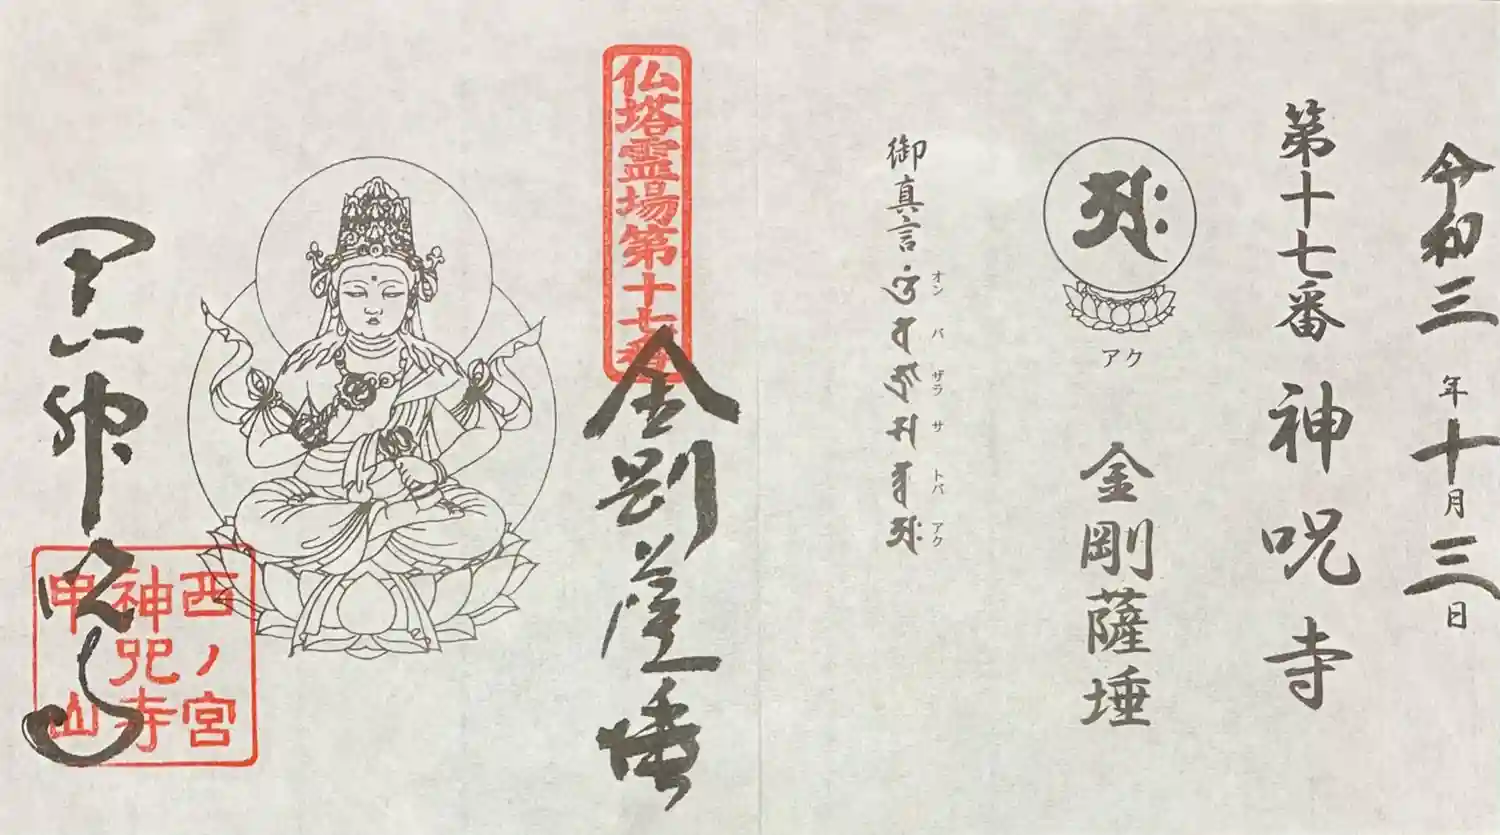 令和三年十月三日
第十七番 神呪寺
アク
金剛薩埵
御真言
オン バ ザラ サ トバ アク
仏塔霊場第十七番
金剛薩埵
甲山 神呪寺
西ノ宮
神呪寺
甲山